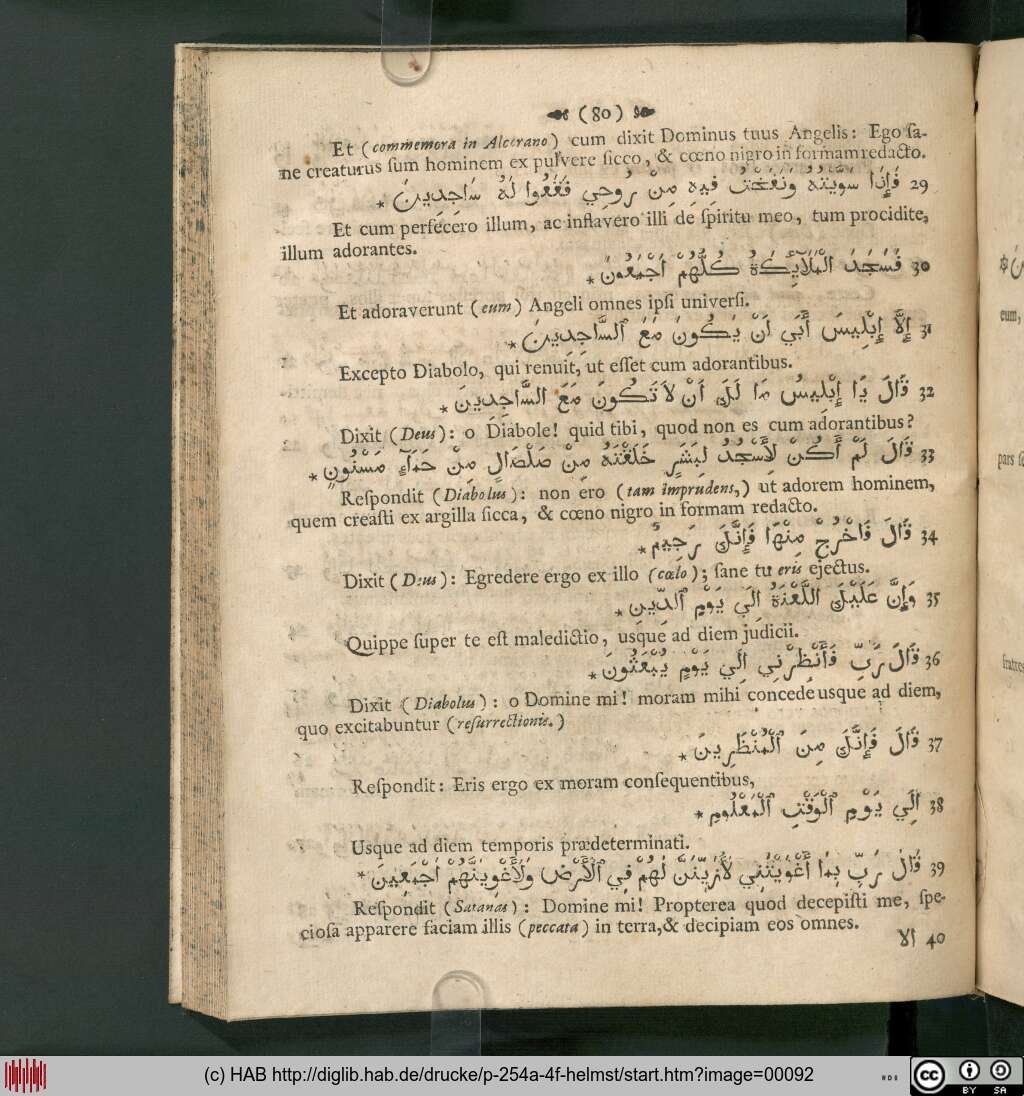 (80)
Et (commemora in Alcorano) cum dixit Dominus tuus Angelis: Ego ſa-
ne creaturus ſum hominem ex pulvere ſicco, & cœno nigro in formam redacto.
فَإِذَا سَوَّيْتُهُ وَنَفَخْتُ فِيهِ مِنْ رُوحِي فَقَعُوا لَهُ سَاجِدِينَ * 29
Et cum perfecero illum, ac inflavero illi de ſpiritu meo, tum procidite,
illum adorantes.
فَسَجَدَ الْمَلَآئِكَةُ كُلُّهُمْ أَجْمَعُونَ * 30
Et adoraverunt (eum) Angeli omnes ipſi univerſi.
إِلَّا إِبْلِيسَ أَبَي أَنْ يَكُونَ مَعَ ٱلسَّاجِدِينَ * 31
Excepto Diabolo, qui renuit, ut eſſet cum adorantibus.
قَالَ يَا إِبْلِيسُ مَا لَكَ أَنْ لَا تَكُونَ مَعَ السَّاجِدِينَ * 32
Dixit (Deus): o Diabole! quid tibi, quod non es cum adorantibus?
قَالَ لَمْ أَكُنْ لِأَسْجُدَ لِبَشَرٍ خَلَقْتَهُ مِنْ صَلْصَالٍ مِنْ حَمَآءٍ مَسْنُونٍ * 33
Reſpondit (Diabolus): non ero (tam imprudens,) ut adorem hominem,
quem creaſti ex argilla ſicca, & cœno nigro in formam redacto.
قَالَ فَاخْرُجْ مِنْهَا فَإِنَّكَ رَجِيمٌ * 34
Dixit (Deus): Egredere ergo ex illo (cœlo); ſane tu eris ejectus.
وَإِنَّ عَلَيْكَ اللَّعْنَةُ إِلَي يَوْمِ ٱلدِّينِ * 35
Quippe ſuper te eſt maledictio, usque ad diem judicii.
قَالَ رَبِّ فَأَنْظِرْنِي إِلَي يَوْمِ يُبْعَثُونَ * 36
Dixit (Diabolus): o Domine mi! moram mihi concede usque ad diem,
quo excitabuntur (reſurrectionis.)
قَالَ فَإِنَّكَ مِنَ ٱلْمُنْظَرِينَ * 37
Reſpondit: Eris ergo ex moram conſequentibus,
إِلَي يَوْمِ ٱلْوَقْتِ ٱلْمَعْلُومِ * 38
Usque ad diem temporis prædeterminati.
قَالَ رَبِّ بِمَا أَغْوَيْتَنِي لَأُزَيِّنَنَّ لَهُمْ فِي ٱلْأَرْضِ وَلَأُغْوِيَنَّهُمْ أَجْمَعِينَ * 39
Reſpondit (Satanas): Domine mi! Propterea quod decepiſti me, ſpe-
cioſa apparere faciam illis (peccata) in terra, & decipiam eos omnes.
الا 40
eum,
pars
fratres
(c) HAB http://diglib.hab.de/drucke/p-254a-4f-helmst/start.htm?image=00092
cc
BY SA